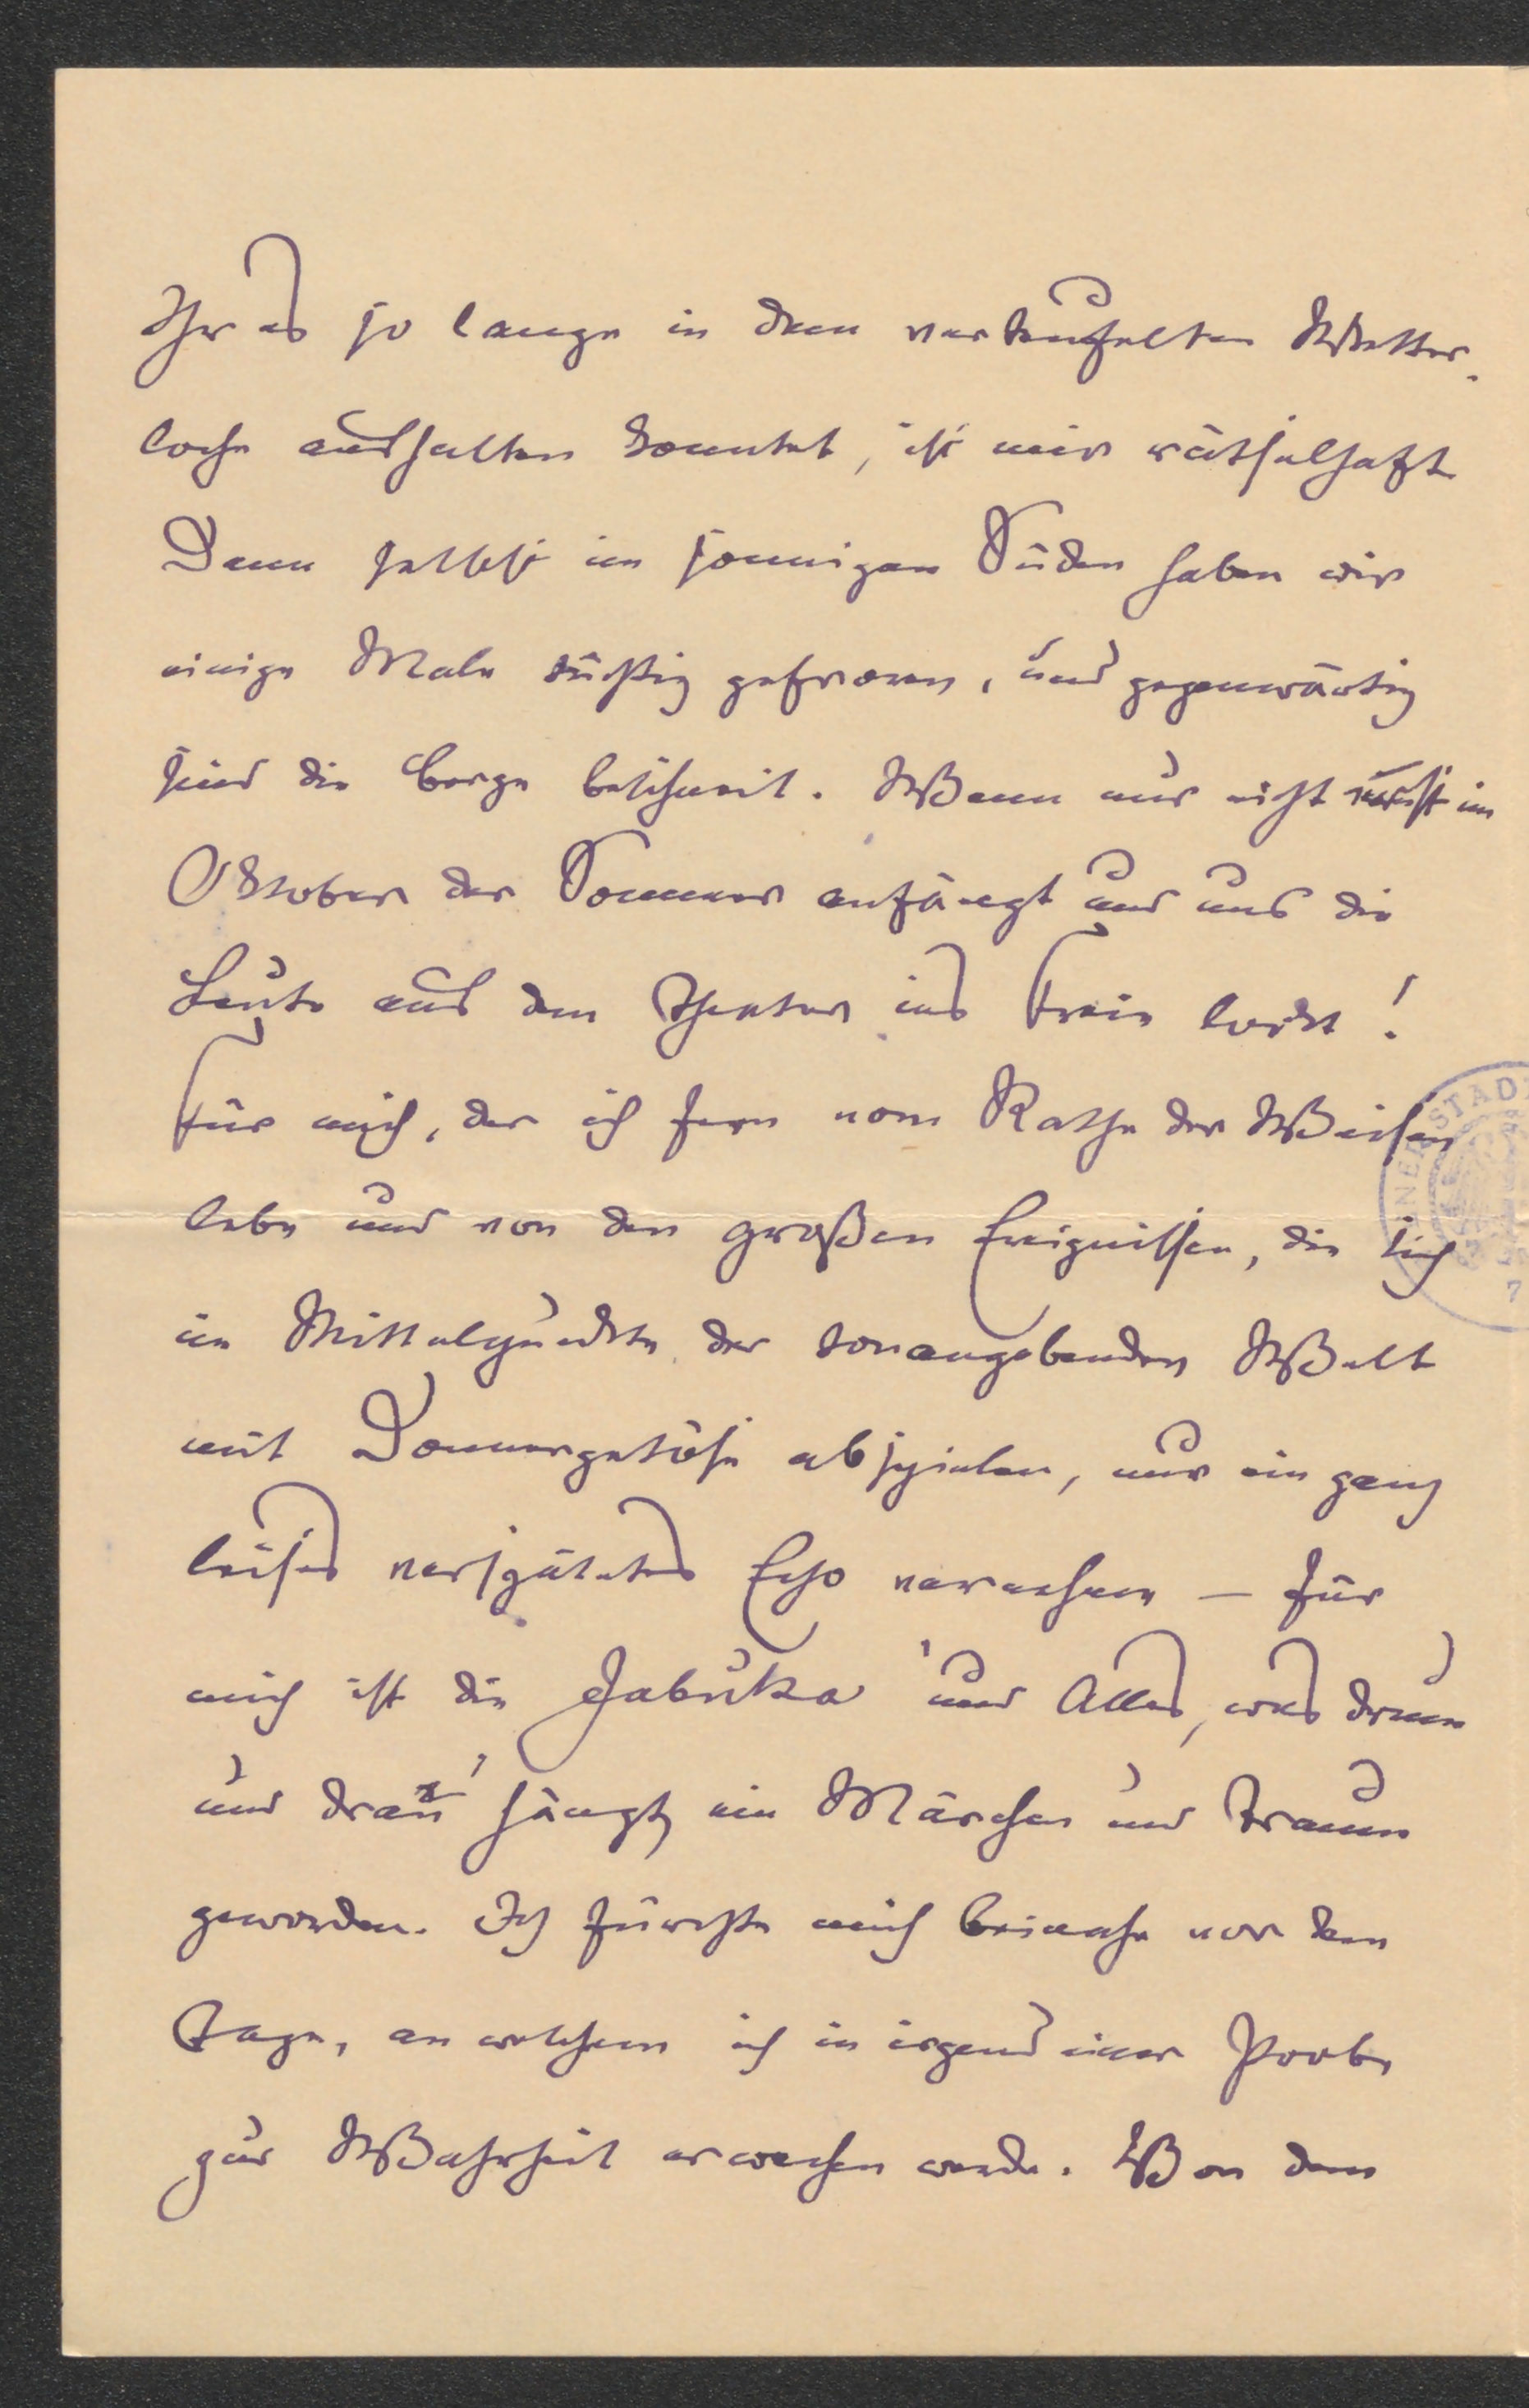 Ihr es so lange in dem verteufelten Wetter-
loche aushalten konntet, ist mir räthselhaft
Denn selbst im sonnigen Süden haben wir
einige Male tüchtig gefroren, und gegenwärtig
sind die Berge beschneit. Wenn nur nicht erst im
Oktober der Sommer anfängt und uns die
Leute aus dem Theater ins Freie lockt!
Für mich, der ich fern vom Rathe der Weisen
lebe und von den großen Ereignissen, die sich
im Mittelpunkte der tonangebenden Welt
mit Donnergetöse abspielen, nur ein ganz
leises verspätetes Echo vernehme – für
mich ist die Jabuka und Alles, was drum
und dran hängt, ein Märchen und Traum
geworden. Ich fürchte mich beinahe vor dem
Tage, an welchem ich in irgend einer Probe
zur Wahrheit erwachen werde. Von dem
STAD
7